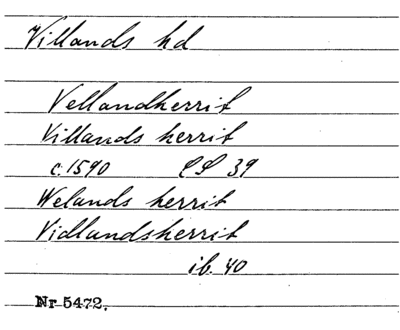 Villands hd
Vellandherrit
Villands herrit
c. 1590 LS 39
Welands herrit
Vidlandsherrit
ib. 40
Nr 5472.